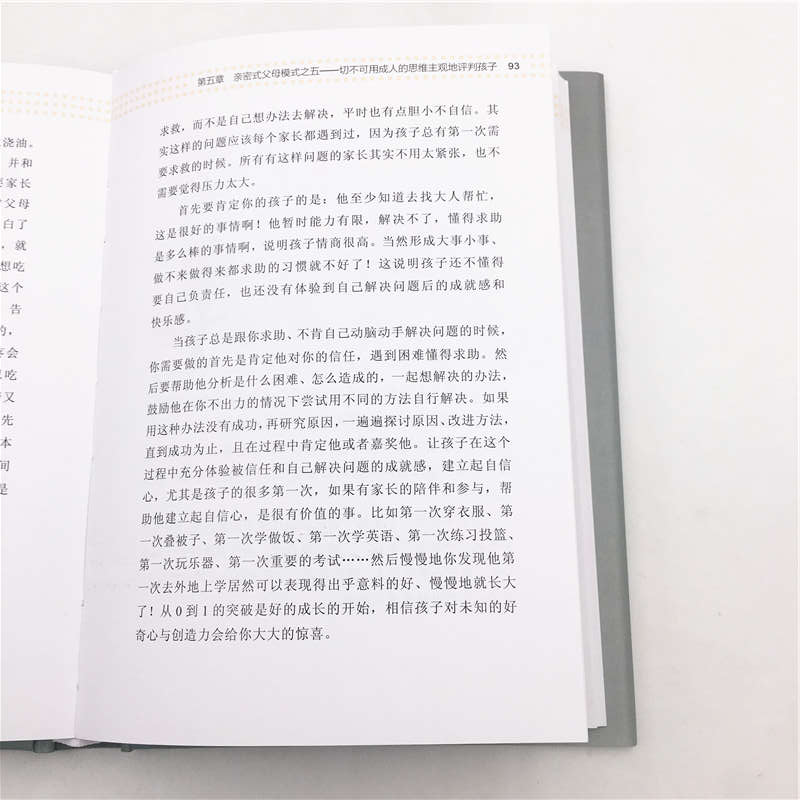 浇油。
并和
要家长
父母
白了
，就
想吃
这个
告
的，
会
吃
又
先
本
间
是
第五章 亲密式父母模式之五——切不可用成人的思维主观地评判孩子 93
求救，而不是自己想办法去解决，平时也有点胆小不自信。其
实这样的问题应该每个家长都遇到过，因为孩子总有第一次需
要求救的时候。所有有这样问题的家长其实不用太紧张，也不
需要觉得压力太大。
首先要肯定你的孩子的是：他至少知道去找大人帮忙，
这是很好的事情啊！他暂时能力有限，解决不了，懂得求助
是多么棒的事情啊，说明孩子情商很高。当然形成大事小事、
做不来做得来都求助的习惯就不好了！这说明孩子还不懂得
要自己负责任，也还没有体验到自己解决问题后的成就感和
快乐感。
当孩子总是跟你求助、不肯自己动脑动手解决问题的时候，
你需要做的首先是肯定他对你的信任，遇到困难懂得求助。然
后要帮助他分析是什么困难、怎么造成的，一起想解决的办法，
鼓励他在你不出力的情况下尝试用不同的方法自行解决。如果
用这种办法没有成功，再研究原因，一遍遍探讨原因、改进方法，
直到成功为止，且在过程中肯定他或者嘉奖他。让孩子在这个
过程中充分体验被信任和自己解决问题的成就感，建立起自信
心，尤其是孩子的很多第一次，如果有家长的陪伴和参与，帮
助他建立起自信心，是很有价值的事。比如第一次穿衣服、第
一次叠被子、第一次学做饭、第一次学英语、第一次练习投篮、
第一次玩乐器、第一次重要的考试……然后慢慢地你发现他第
一次去外地上学居然可以表现得出乎意料的好、慢慢地就长大
了！从 0 到 1 的突破是好的成长的开始，相信孩子对未知的好
奇心与创造力会给你大大的惊喜。